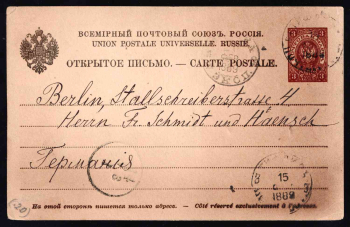 ВСЕМІРНЫЙ ПОЧТОВЫЙ СОЮЗЪ. РОССІЯ.
UNION POSTALE UNIVERSELLE. RUSSIE.
ОТКРЫТОЕ ПИСЬМО. — CARTE POSTALE.
Berlin, Stallschreiberstrasse 4
Herrn Fr. Schmidt und Haensch
Германія
15
1889
На этой сторонѣ пишется только адресъ. — Côté réservé exclusivement à l'adresse.